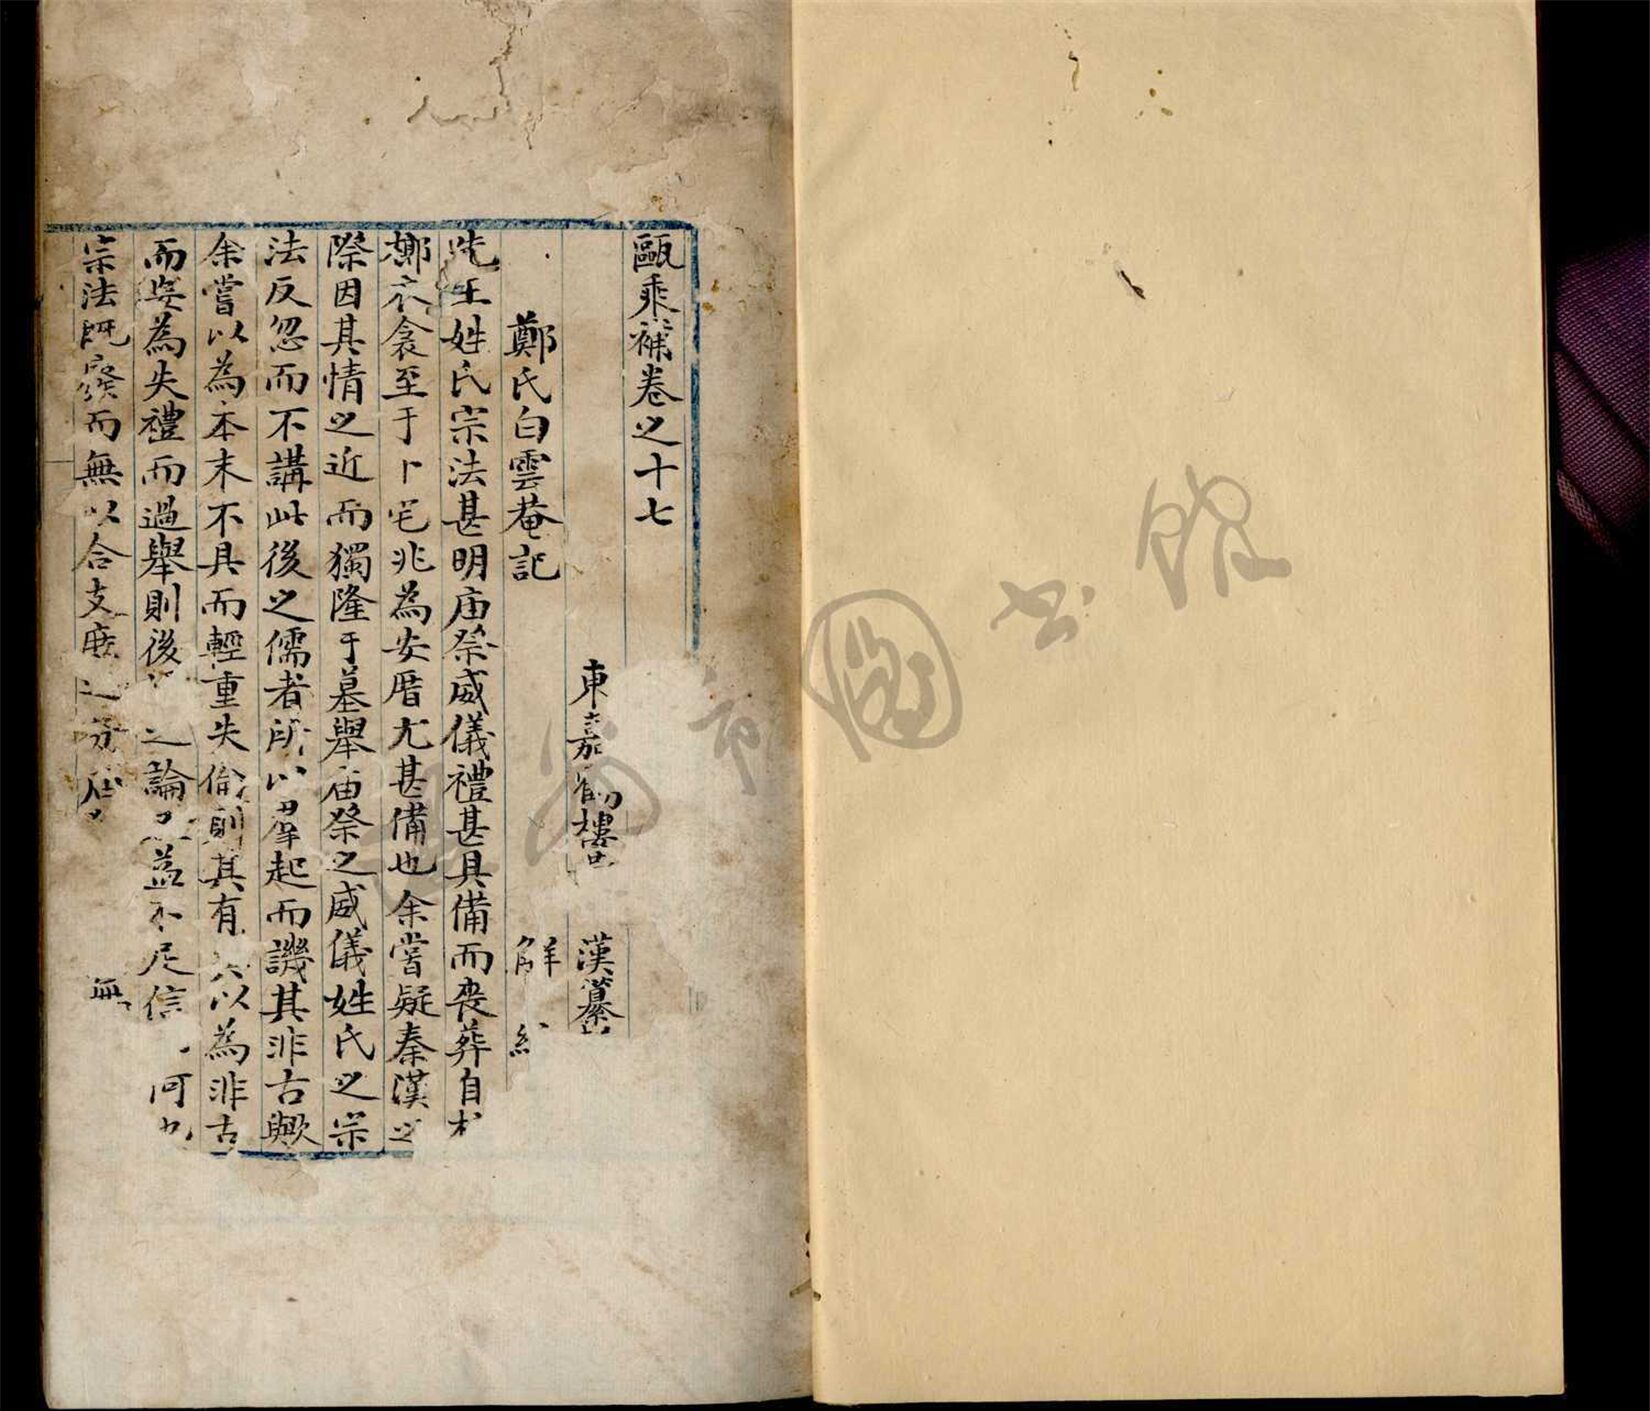 甌乘補卷之十七
東嘉鶴樓 漢纂
鄭氏白雲菴記 解
先王姓氏宗法甚明庙祭威儀禮甚具備而喪葬自
槨衣衾至于卜宅兆為安厝尤甚備也余嘗疑秦漢之
際因其情之近而獨隆于墓舉庙祭之威儀姓氏之宗
法反忽而不講此後之儒者所以羣起而譏其非古歟
余嘗以為本末不具而輕重失倫則其有 以為非古
而安為失禮而過舉則後 之論 益不足信 何也
宗法既廢而無以合支庶之分 無
市圖书馆